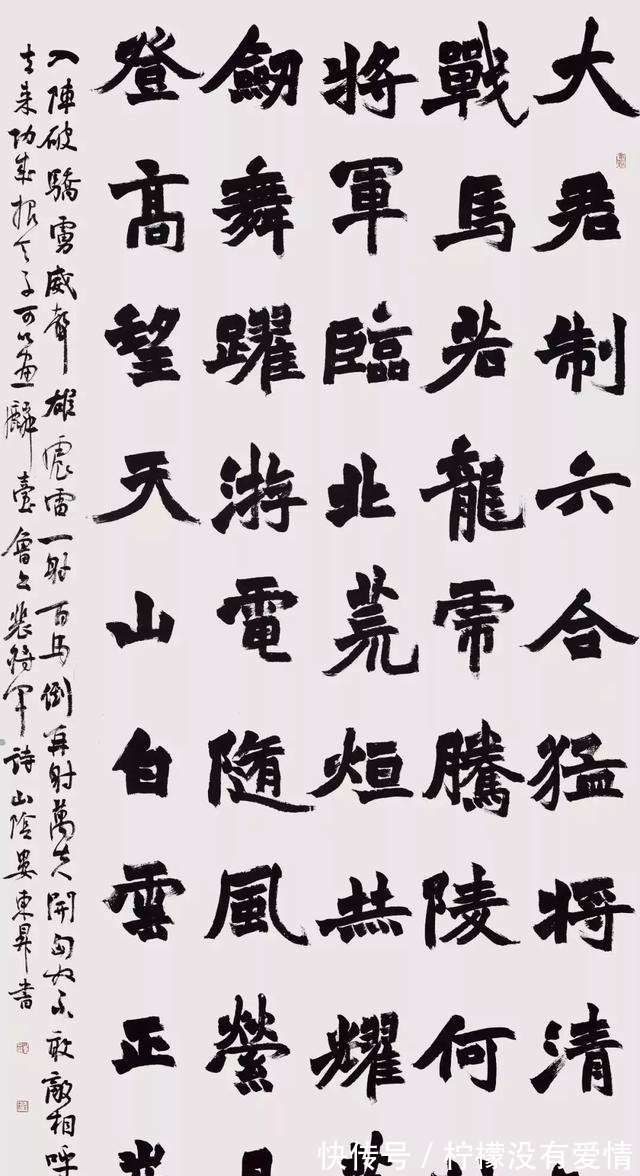 大君制六合猛將清
戰馬若龍虎騰陵何
將軍臨北荒烜赫耀
劒舞躍游電隨風縈
登高望天山白雲正
入陣破驕虜威聲雄震雷一射百馬倒再射萬夫開匈奴不敢敵相呼
去来功成報天子可以畫麟臺魯公裴將軍詩山陰婁東昇書
快传号 / 柠檬没有爱情